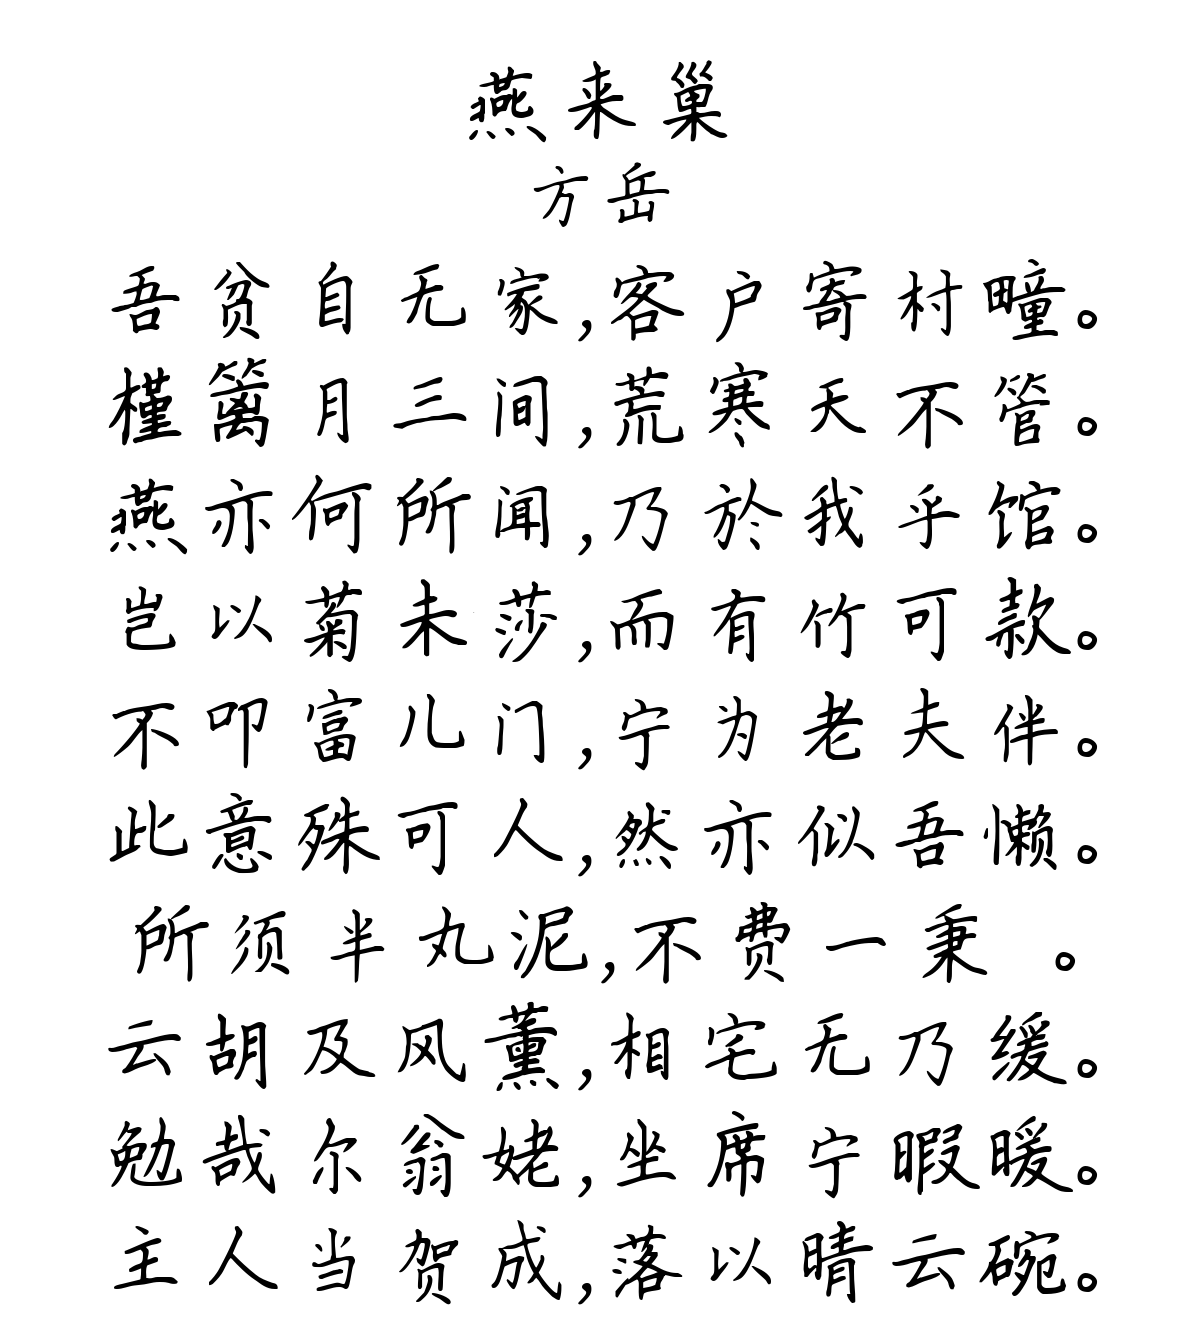 燕来巢
方岳
吾贫自无家,客户寄村疃。
槿篱月三间,荒寒天不管。
燕亦何所闻,乃於我乎馆。
岂以菊未莎,而有竹可款。
不叩富儿门,宁为老夫伴。
此意殊可人,然亦似吾懒。
所须半丸泥,不费一秉 。
云胡及风薰,相宅无乃缓。
勉哉尔翁姥,坐席宁暇暖。
主人当贺成,落以晴云碗。